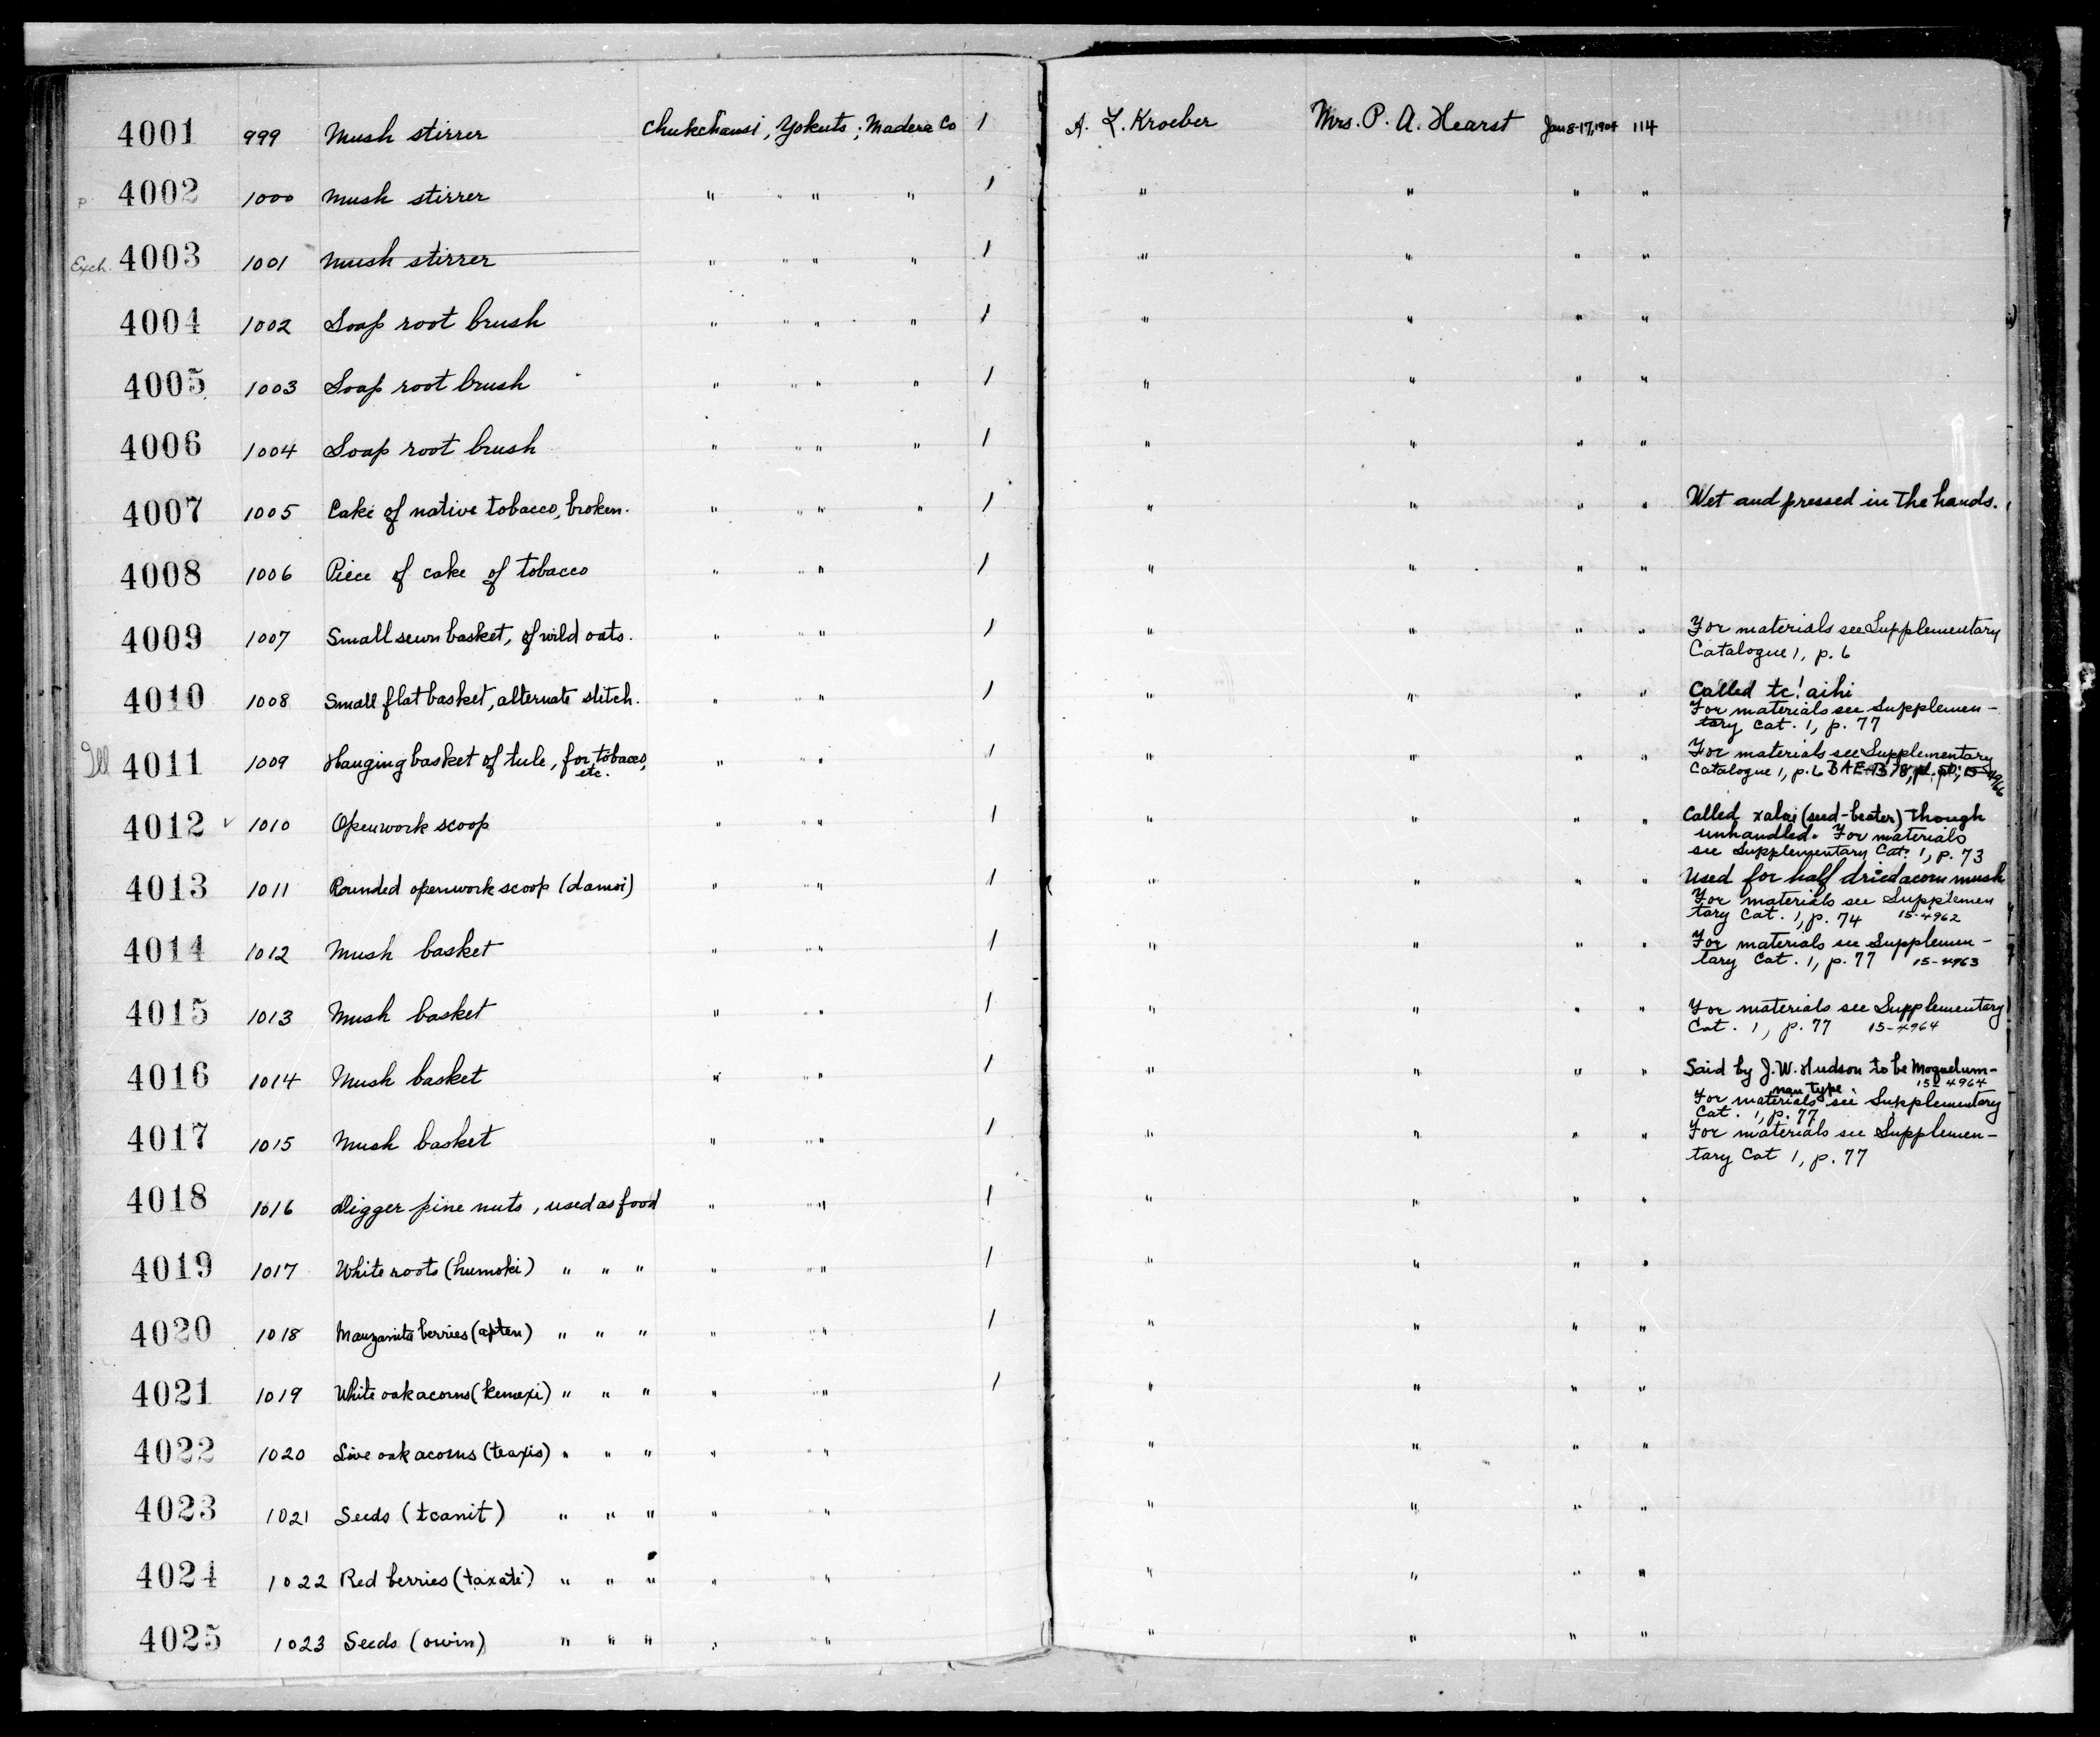 4001 999 Mush stirrer Chukchansi, Yokuts; Madera Co 1 A. L. Kroeber Mrs. P. A. Hearst Jan 8-17, 1904 114
P 4002 1000 Mush stirrer " " " 1 " " " "
Exch. 4003 1001 Mush stirrer " " " 1 " " " "
4004 1002 Soap root brush " " " 1 " " " "
4005 1003 Soap root brush " " " 1 " " " "
4006 1004 Soap root brush " " " 1 " " " "
4007 1005 Cake of native tobacco, broken. " " " 1 " " " " Wet and pressed in the hands.
4008 1006 Piece of cake of tobacco " " 1 " " " "
4009 1007 Small sewn basket, of wild oats. " " 1 " " " " For materials see Supplementary
Catalogue 1, p. 6
4010 1008 Small flat basket, alternate stitch. " " 1 " " " " Called tc! aihi
For materials see Supplemen-
tary Cat. 1, p. 77
Ill 4011 1009 Hanging basket of tule, for tobacco, " " 1 " " " " For materials see Supplementary
etc. Catalogue 1, p. 6 BAE-B 78, pl. 50; 15-4966
4012 v 1010 Openwork scoop " " 1 " " " " Called (seed-beater) though
unhandled. For materials
see Supplementary Cat. 1, p. 73
4013 1011 Rounded openwork scoop (damai) " " 1 " " " " Used for half dried acorn mush
For materials see Supplemen
tary Cat. 1, p. 74 15-4962
4014 1012 Mush basket " " 1 " " " " For materials see Supplemen-
tary Cat. 1, p. 77 15-4963
4015 1013 Mush basket " " 1 " " " " For materials see Supplementary
Cat. 1, p. 77 15-4964
4016 1014 Mush basket " " 1 " " " " Said by J. W. Hudson to be Moquelum-
nan type. 15-4964
For materials see Supplementary
Cat. 1, p. 77
4017 1015 Mush basket " " 1 " " " " For materials see Supplemen-
tary Cat 1, p. 77
4018 1016 Digger pine nuts, used as food " " 1 " " " "
4019 1017 White roots (humoki) " " " " " 1 " " " "
4020 1018 Manzanita berries (apten) " " " " " 1 " " " "
4021 1019 White oak acorns (kenexi) " " " " " 1 " " " "
4022 1020 Live oak acorns (teaxis) " " " " " " " " "
4023 1021 Seeds (tcanit) " " " " " " " " "
4024 1022 Red berries (taxati) " " " " " " " " "
4025 1023 Seeds (owin) " " " " " " " " "